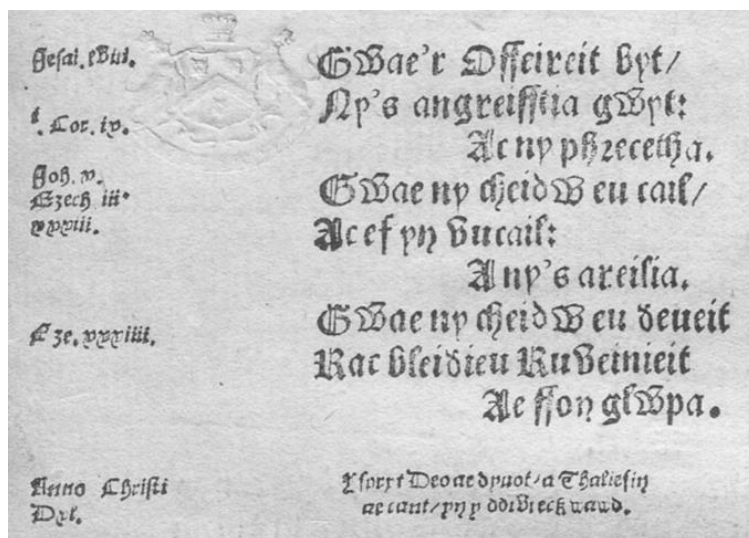 Jesai. lviii.
i. Cor. ix.
Joh. x.
Ezech iii
xxxiii.
Eze. xxxiiii.
Gwae'r Offeireit byt/
Ny's angreifftia gwyt:
Ac ny phrecetha.
Gwae ny cheidw eu cail/
Ac ef yn vucail:
A ny's areilia.
Gwae ny cheidw eu deueit
Rac bleidieu Ruveinieit
Ae ffon glwpa.
Anno Christi
Dxl.
Deo ae dyuot/a Thaliesin
ae cant/yn y